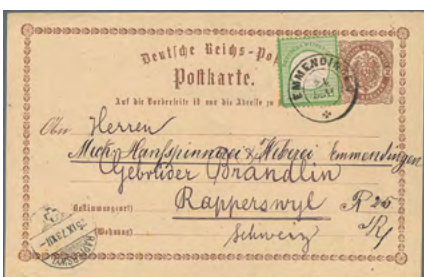 Deutsche Reichs-Post
Postkarte.
Auf die Vorderseite ist nur die Adresse zu
EMMENDINGEN
An Herren
Mech. Hanfspinnerei & Weberei Emmendingen
Gebrüder Brändlin
Bestimmungsort)
Rapperswyl
(Wohnung)
Schweiz
RAPPERSWYL